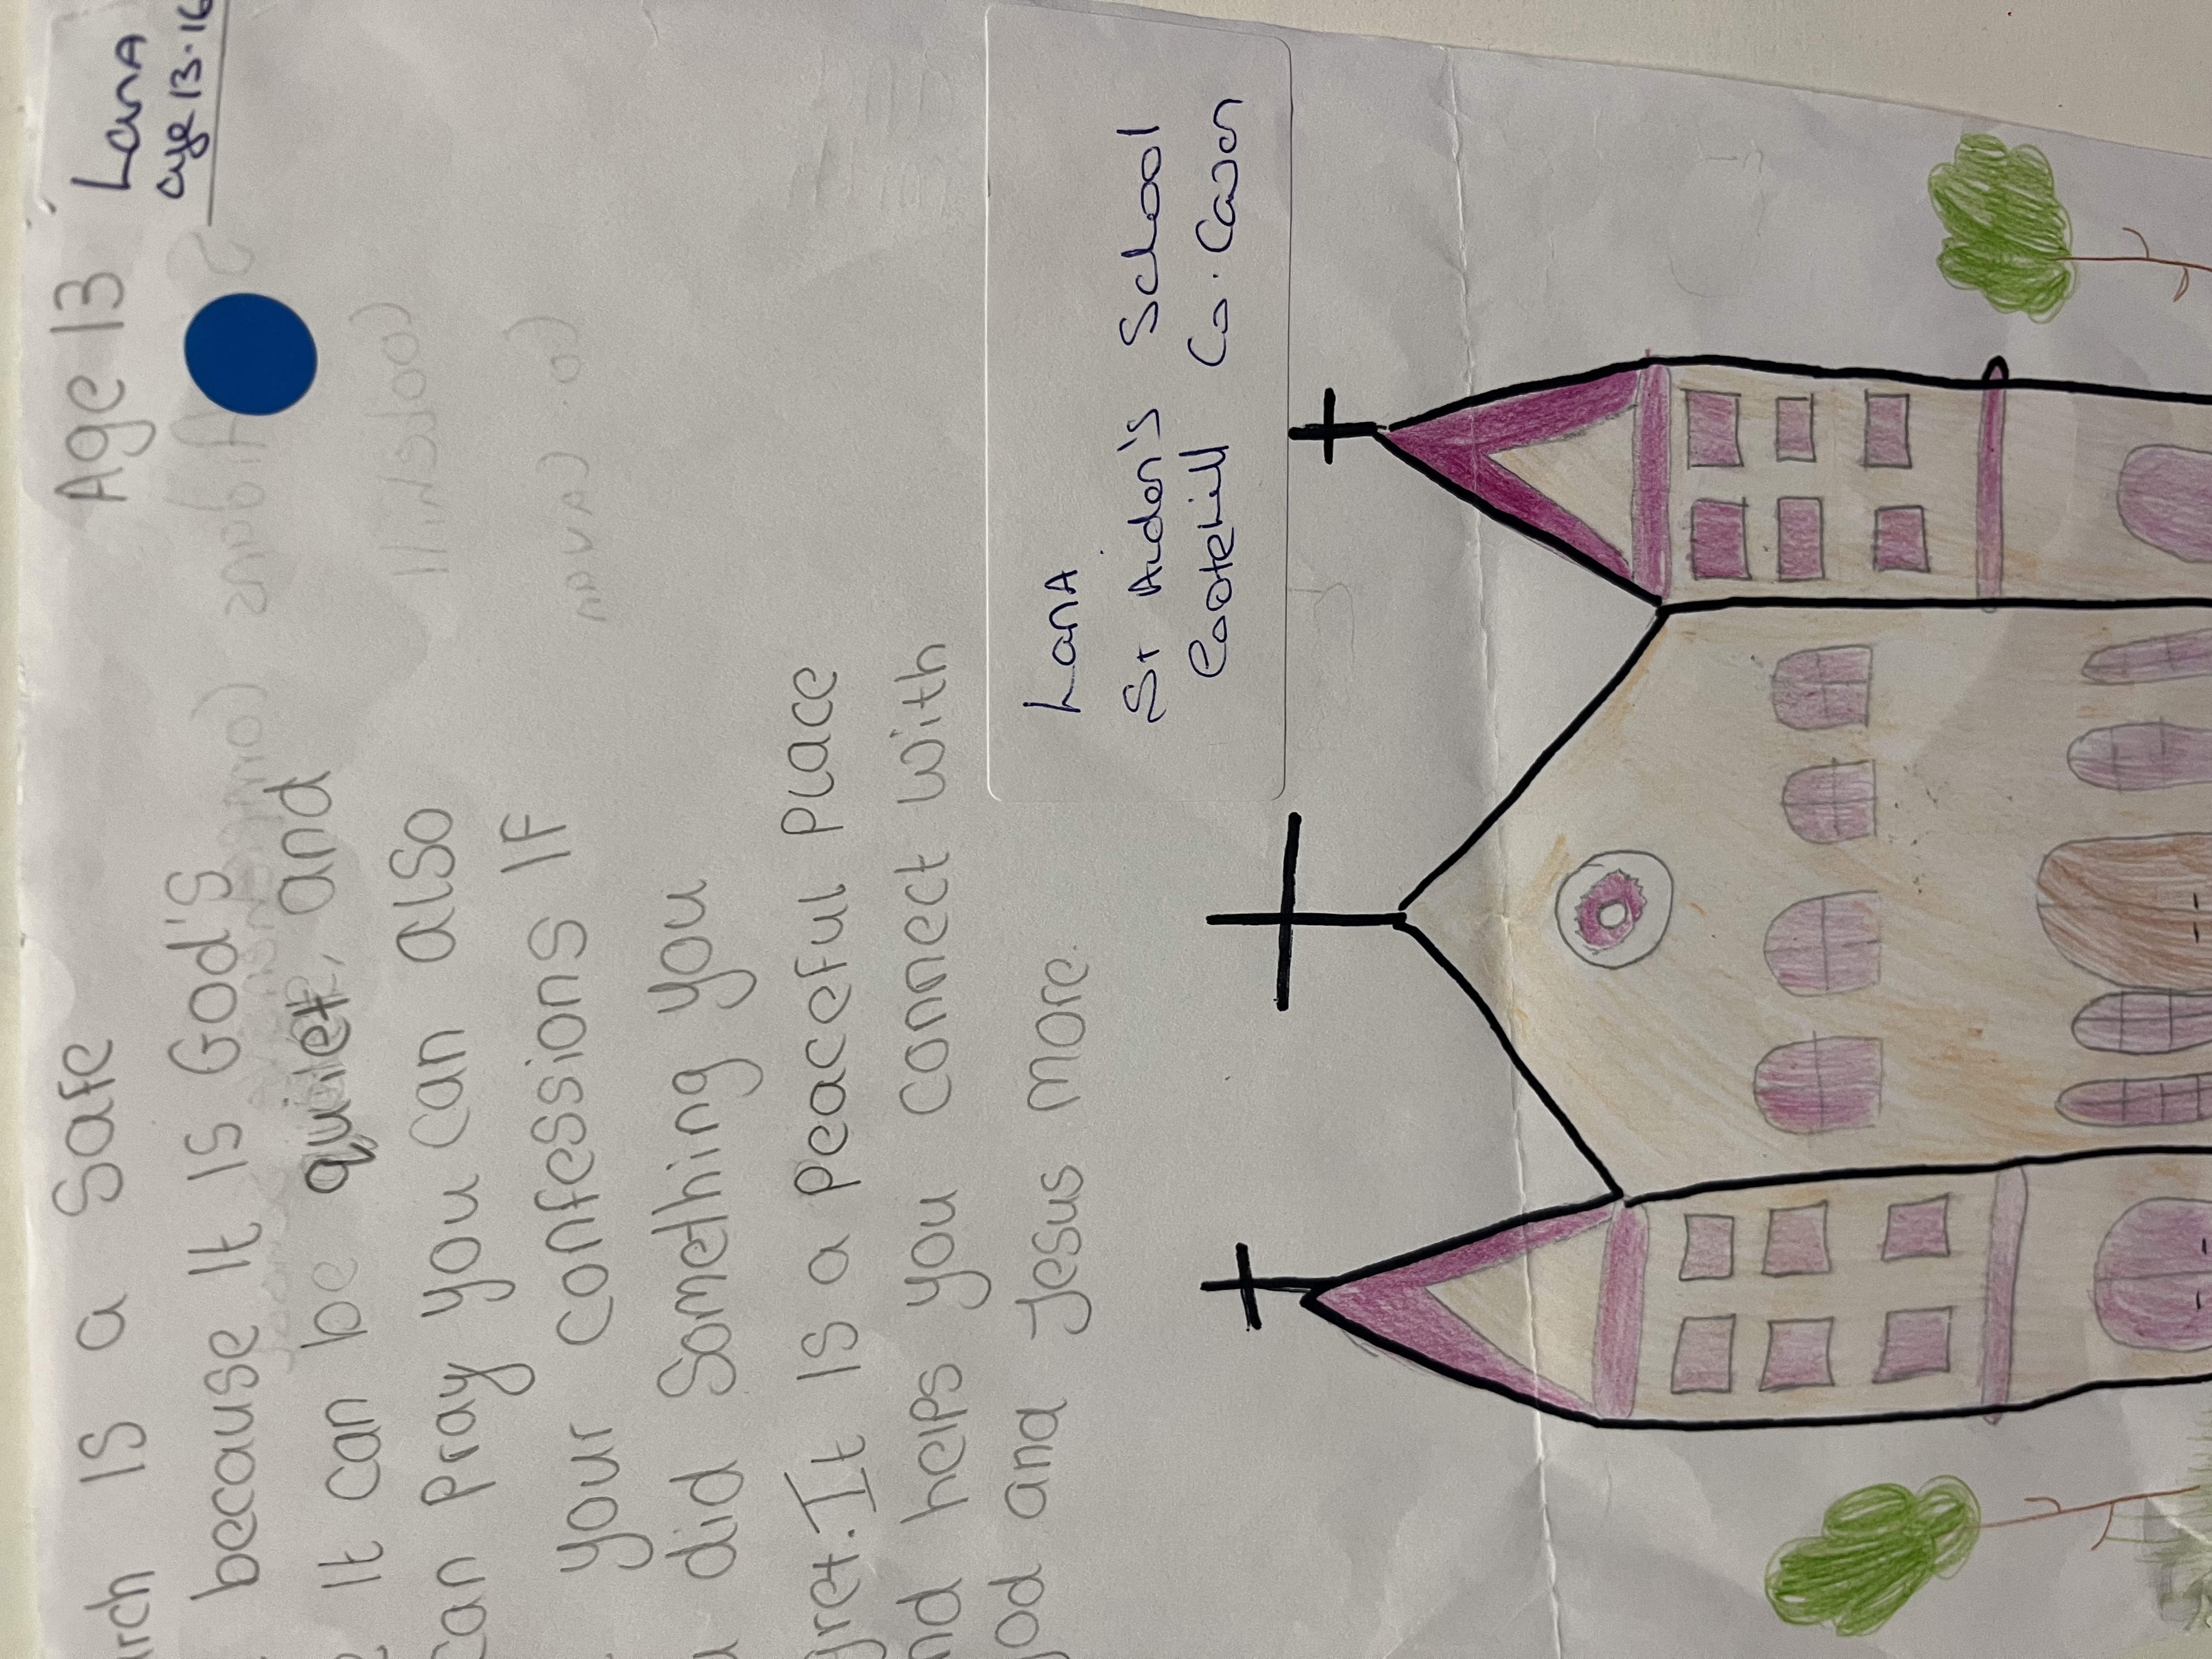 Age 13
LanA
age 13-16
rch IS a Safe
because It IS God's
It can be quiet, and
can pray you can also
your confessions IF
did Something you
gret. It IS a peaceful place
nd helps you connect with
god and Jesus more.
LanA
St Aiden's School
Cootehill Co. Cavan